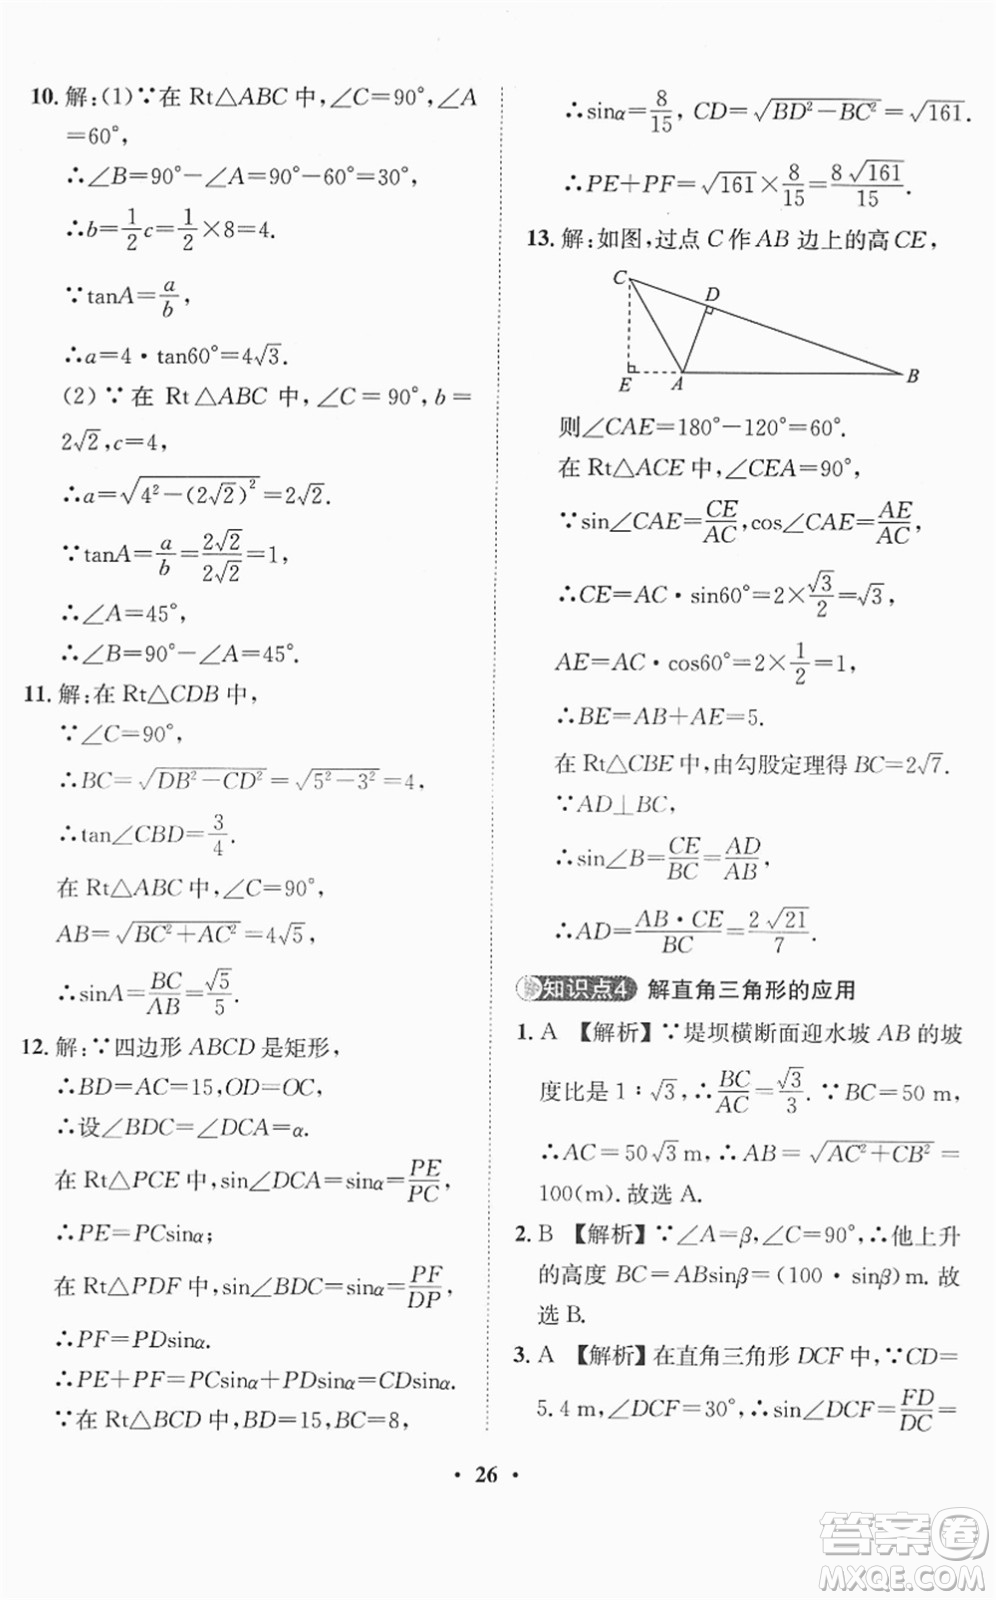 10. 解:(1)∵在 Rt△ABC 中,∠C=90°,∠A
=60°,
∴∠B=90°-∠A=90°-60°=30°,
∴b=\frac{1}{2}c=\frac{1}{2}×8=4.
∵tanA=\frac{a}{b},
∴a=4·tan60°=4√3.
(2) ∵在 Rt△ABC 中,∠C=90°,b=
2√2,c=4,
∴a=\sqrt{4²-(2√2)²}=2√2.
∵tanA=\frac{a}{b}=\frac{2√2}{2√2}=1,
∴∠A=45°,
∴∠B=90°-∠A=45°.
11. 解:在 Rt△CDB 中,
∵∠C=90°,
∴BC=\sqrt{DB²-CD²}=\sqrt{5²-3²}=4,
∴tan∠CBD=\frac{3}{4}.
在 Rt△ABC 中,∠C=90°,
AB=\sqrt{BC²+AC²}=4√5,
∴sinA=\frac{BC}{AB}=\frac{√5}{5}.
12. 解:∵四边形 ABCD 是矩形,
∴BD=AC=15,OD=OC,
∴设∠BDC=∠DCA=α.
在 Rt△PCE 中,sin∠DCA=sinα=\frac{PE}{PC},
∴PE=PCsinα;
在 Rt△PDF 中,sin∠BDC=sinα=\frac{PF}{DP},
∴PF=PDsinα.
∴PE+PF=PCsinα+PDsinα=CDsinα.
∵在 Rt△BCD 中,BD=15,BC=8,
∴sinα=\frac{8}{15}, CD=\sqrt{BD²-BC²}=\sqrt{161}.
∴PE+PF=\sqrt{161}×\frac{8}{15}=\frac{8\sqrt{161}}{15}.
13. 解:如图,过点 C 作 AB 边上的高 CE,
C
D
E
A
B
则∠CAE=180°-120°=60°.
在 Rt△ACE 中,∠CEA=90°,
∵sin∠CAE=\frac{CE}{AC},cos∠CAE=\frac{AE}{AC},
∴CE=AC·sin60°=2×\frac{√3}{2}=√3,
AE=AC·cos60°=2×\frac{1}{2}=1,
∴BE=AB+AE=5.
在 Rt△CBE 中,由勾股定理得 BC=2√7.
∵AD⊥BC,
∴sin∠B=\frac{CE}{BC}=\frac{AD}{AB},
∴AD=\frac{AB·CE}{BC}=\frac{2\sqrt{21}}{7}.
知识点4 解直角三角形的应用
1. A 【解析】∵堤坝横断面迎水坡 AB 的坡
度比是 1∶√3,∴\frac{BC}{AC}=\frac{√3}{3}. ∵BC=50 m,
∴AC=50√3 m,∴AB=\sqrt{AC²+CB²}=
100(m). 故选 A.
2. B 【解析】∵∠A=β,∠C=90°,∴他上升
的高度 BC=ABsinβ=(100·sinβ)m. 故
选 B.
3. A 【解析】在直角三角形 DCF 中,∵CD=
5.4 m,∠DCF=30°,∴sin∠DCF=\frac{FD}{DC}=
· 26 ·
答案卷
MXQE.COM